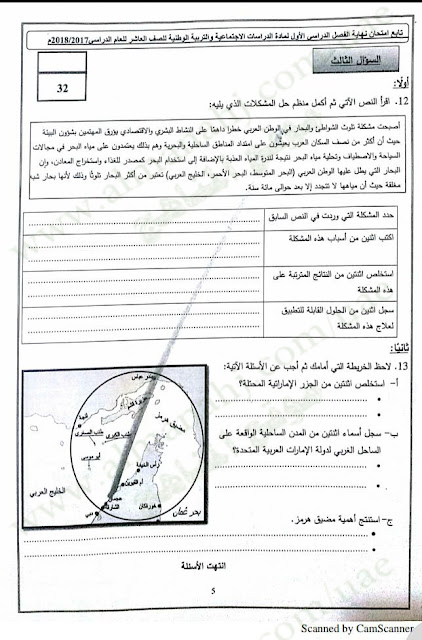 تابع امتحان نهاية الفصل الدراسي الأول لمادة الدراسات الاجتماعية والتربية الوطنية للصف العاشر للعام الدراسي 2018/2017م
السؤال الثالث
32
أولًا:
12. اقرأ النص الآتي ثم أكمل منظم حل المشكلات الذي يليه:
أصبحت مشكلة تلوث الشواطئ والبحار في الوطن العربي خطرا داهمًا على النشاط البشري والاقتصادي يؤرق المهتمين بشؤون البيئة
حيث أن أكثر من نصف السكان العرب يعيشون على امتداد المناطق الساحلية والبحرية وهم بذلك يعتمدون على مياه البحر في مجالات
السياحة والاصطياف وتحلية مياه البحر نتيجة لندرة المياه العذبة بالإضافة إلى استخدام البحر كمصدر للغذاء واستخراج المعادن، وإن
البحار التي يطل عليها الوطن العربي (البحر المتوسط، البحر الأحمر، الخليج العربي) تعتبر من أكثر البحار تلوثًا وذلك لأنها بحار شبه
مغلقة حيث أن مياهها لا تتجدد إلا بعد حوالى مائة سنة.
حدد المشكلة التي وردت في النص السابق
اكتب اثنين من أسباب هذه المشكلة
استخلص اثنتين من النتائج المترتبة على
هذه المشكلة
سجل اثنين من الحلول القابلة للتطبيق
لعلاج هذه المشكلة
ثانيًا:
13. لاحظ الخريطة التي أمامك ثم أجب عن الأسئلة الآتية:
أ- استخلص اثنتين من الجزر الإماراتية المحتلة؟
ب- سجل أسماء اثنتين من المدن الساحلية الواقعة على
الساحل الغربي لدولة الإمارات العربية المتحدة؟
ج- استنتج أهمية مضيق هرمز.
بندر عباس
مضيق هرمز
طنب الكبرى
طنب الصغرى
أبو موسى
رأس الخيمة
أم القيوين
عجمان
الشارقة
دبي
خورفكان
الخليج العربي
بحر عُمان
انتهت الأسئلة
5
Scanned by CamScanner